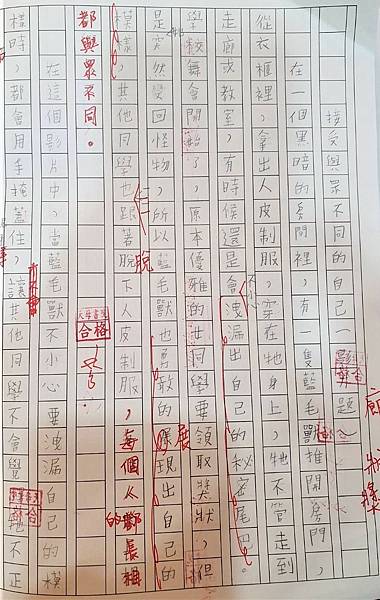 接受與眾不同的自己
在一個黑暗的房間裡，有一隻藍毛獸推開房門，
從衣櫃裡，拿出人皮制服，穿在牠身上，牠不管走到
走廊或教室，有時候還是會不小心洩漏出自己的秘密尾巴。
學校舞會開始了，原本優雅的女同學要領取獎狀，但
是牠突然變回怪物，所以藍毛獸也勇敢的展現出自己的
模樣，其他同學也跟著脫下人皮制服，每個人的長相
都與眾不同。
合格
在這個影片中，當藍毛獸不小心要洩漏自己的模
樣時，都會用手掩蓋住，讓其他同學不會覺牠不正
廊 狀獎
脫